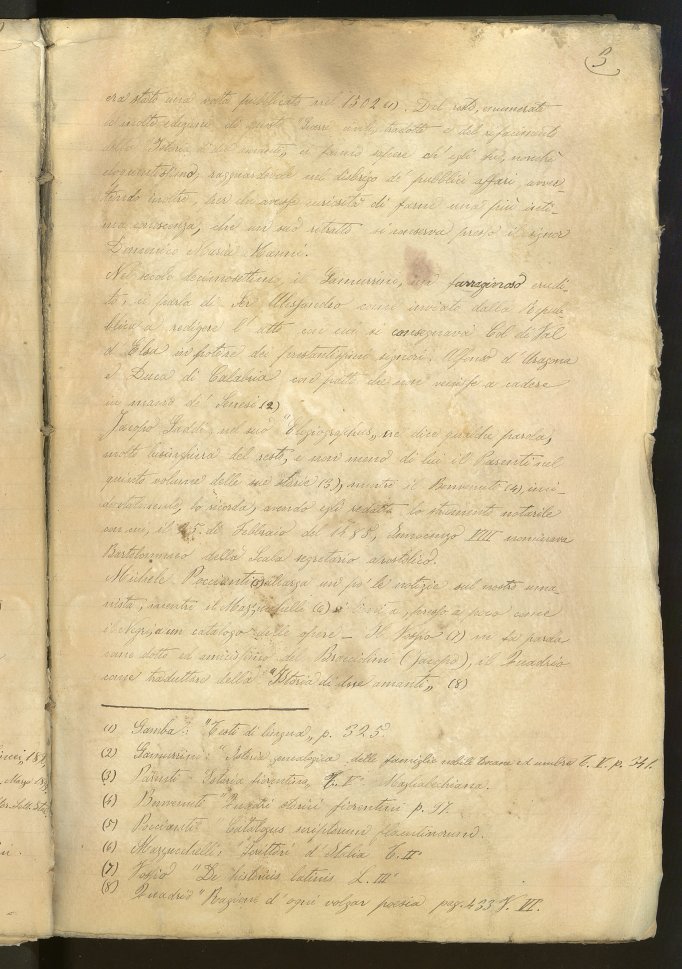 3
era stato una volta pubblicato nel 1302 (1). Del resto, enumerate
il molto eseguire di questo
della "Istoria di due amanti", ci fanno sapere ch'egli fu, nonché
eloquentissimo, ragguardevole nel disbrigo de' pubblici affari, avver-
tendo inoltre, per chi avesse curiosità di farne una più inti-
ma conoscenza, che un suo ritratto si conserva presso il signor
Domenico Maria Manni.
Nel secolo decimosettimo, il Gamurrini, un farraginoso erudi-
to, ci parla di Ser Alessandro come inviato dalla Repub-
blica a redigere l'atto con cui si consegnava Col di Val
d'Elsa in potere dei prestantissimi signori Alfonso d'Aragona
e Duca di Calabria con patti che non venisse a cadere
in mano de' Senesi (2)
Jacopo Gaddi, nel suo " ne dice qualche parola,
molto lusinghiera del resto, e non meno di lui il Parenti nel
quinto volume delle sue storie (3), mentre il Benvenuti (4), inci-
dentalmente, lo ricorda, avendo egli redatto lo strumento notarile
con cui, il 25 di Febbraio del 1488, Innocenzo VIII nominava
Bartolommeo della Scala segretario apostolico.
Michele Poccianti (5) allarga un po' le notizie sul nostro uma-
nista, mentre il Mazzucchelli (6) si limita, presso a poco come
il Negri, a un catalogo delle opere – Il Vossio (7) ne fa parola
come dotto ed amicissimo del Bracciolini (Jacopo), il Quadrio
come traduttore della "Istoria di due amanti" (8)
(1) Gamba: "Testi di lingua" p. 325.
(2) Gamurrini: "Istoria genealogica delle famiglie nobili toscane ed umbre T. V. p. 341.
(3) Parenti "Istoria fiorentina, T. V" Magliabechiana.
(4) Benvenuti storici fiorentini p. 97.
(5) Poccianti Catalogus scriptorum florentinorum.
(6) Mazzucchelli: "Scrittori d'Italia T. II"
(7) Vossio "De historicis latinis L. III"
(8) Quadrio "Ragione d'ogni volgar poesia pag. 433 T. VI.